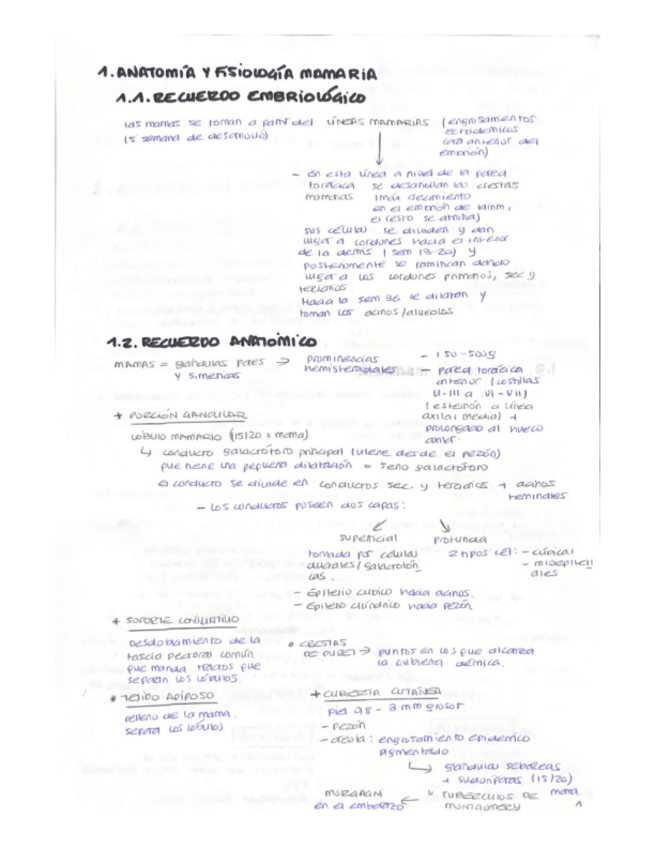 1. ANATOMÍA Y FISIOLOGÍA MAMARIA
1.1. RECUERDO EMBRIOLÓGICO
Las mamas se forman a partir del LÍNEAS MAMARIAS (engrosamientos
(5 semana de desarrollo) ectodérmicos
cara anterior del
embrión)
- En esta línea a nivel de la pared
torácica se desarrollan las crestas
mamarias (máx crecimiento
en el embrión de 10mm,
el resto se atrofia)
sus células se dividen y dan
lugar a cordones hacia el interior
de la dermis (sem 13-20) y
posteriormente se ramifican dando
lugar a los cordones primarios, sec y
terciarios.
Hacia la sem 36 se dilatan y
forman los acinos/alveolos
1.2. RECUERDO ANATÓMICO
MAMAS = glándulas pares → prominencias - 150-500g
y simétricas hemisferoidales - pared torácica
anterior (costillas
II-III a VI-VII)
(esternón a línea
axilar media) +
prolongado al hueco
axilar.
+ PORCIÓN GLANDULAR
LOBULO MAMARIO (15/20 x mama)
↳ conducto galactóforo principal (viene desde el pezón)
que tiene una pequeña dilatación = seno galactóforo
el conducto se divide en conductos sec. y terciarios + acinos
terminales
- Los conductos poseen dos capas:
superficial profunda
formada por células 2 tipos cel: - cúbica
ductales/galactofóri - mioepiteli
cas. ales
- Epitelio cúbico hacia acinos.
- Epitelio cilíndrico hacia pezón.
+ SOPORTE CONJUNTIVO
Desdoblamiento de la
fascia pectoral común
que manda tractos que
separan los lóbulos.
• CRESTAS
DE DURET → puntos en los que alcanza
la cubierta dérmica.
+ TEJIDO ADIPOSO
relleno de la mama.
separa los lóbulos
+ CUBIERTA CUTÁNEA
piel 0,8 - 3 mm grosor
- pezón
- areola: engrosamiento epidérmico
pigmentado
↳ glándulas sebáceas
+ sudoríparas (15/20)
mama
" TUBÉRCULOS DE
MONTGOMERY
← MORGAGNI
en el embarazo
1